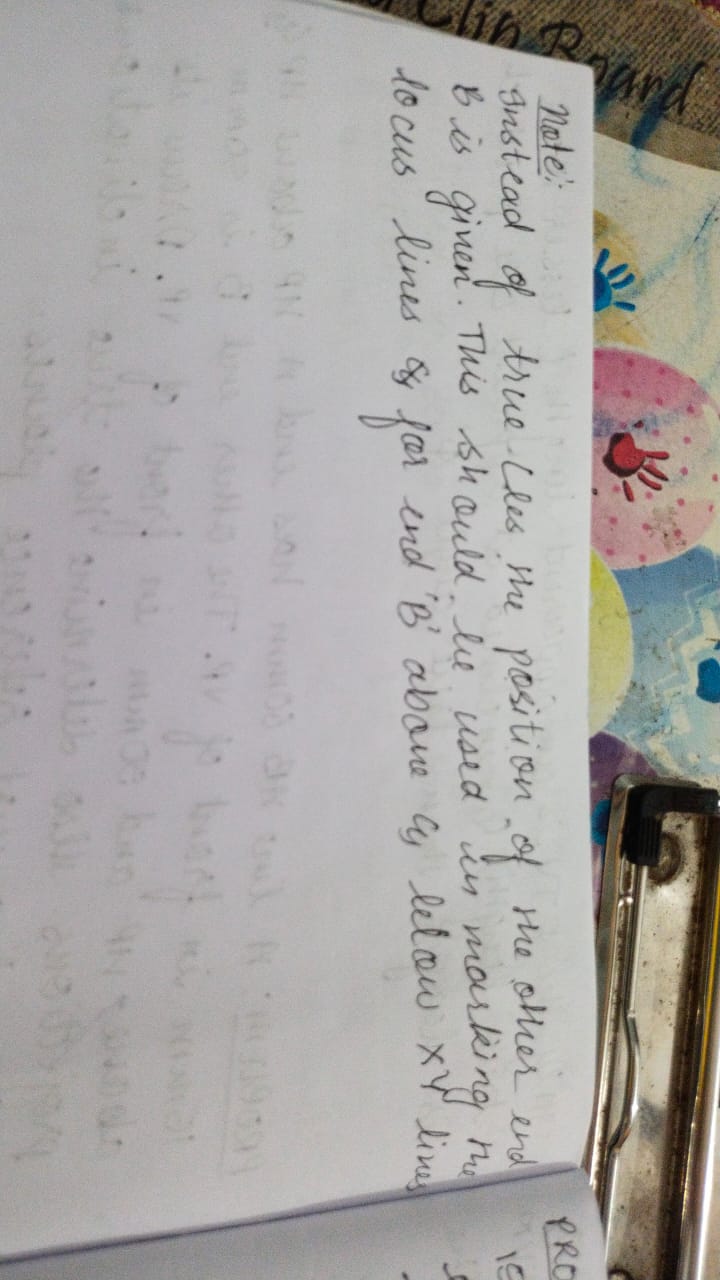 Clip Board
Note:
Instead of true Les the position of the other end
B is given. This should be used in marking the
locus lines & for end 'B' above & below XY lines
PRO